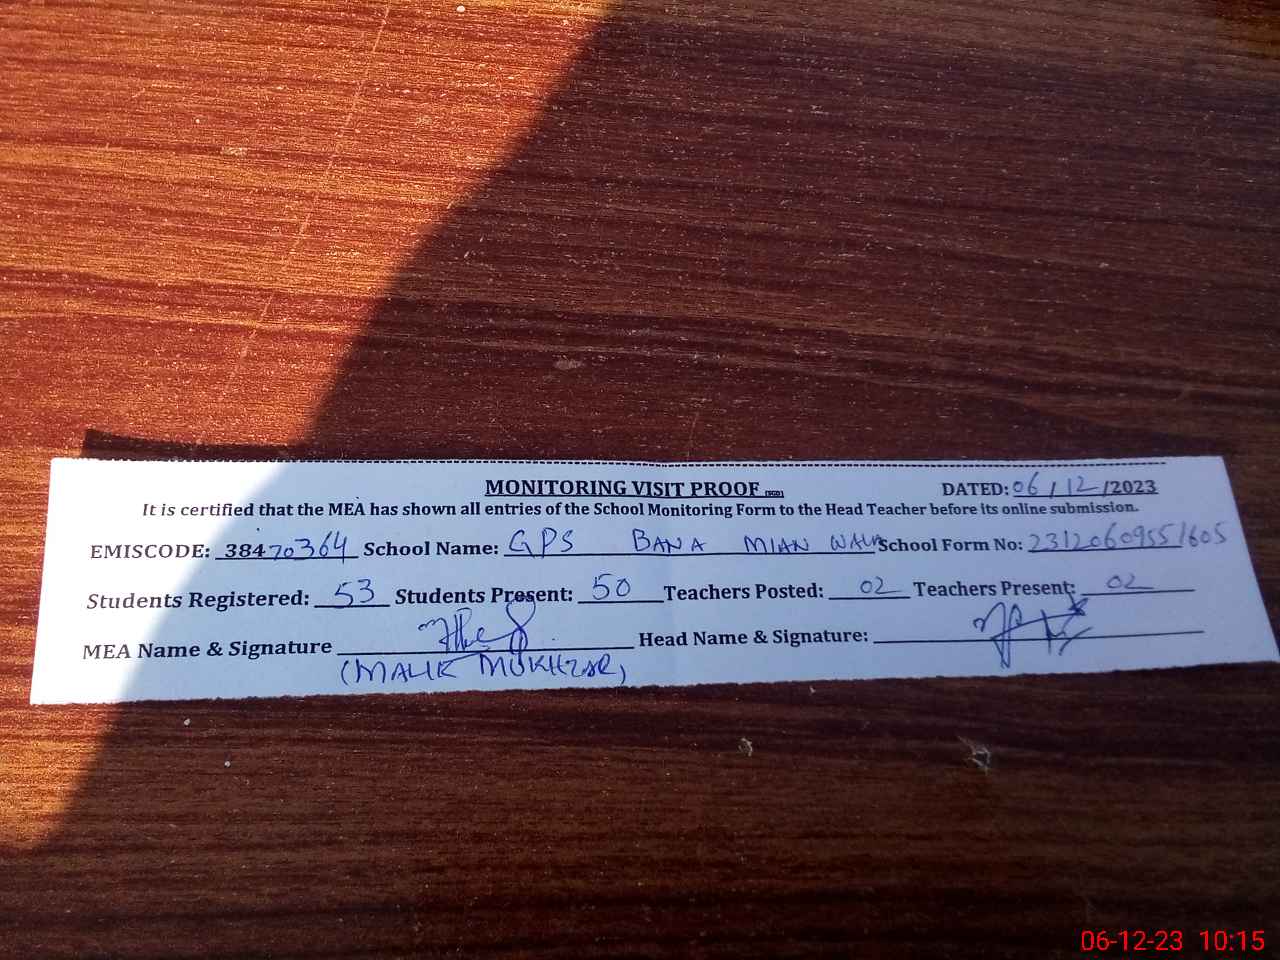 MONITORING VISIT PROOF
DATED: 06/12/2023
It is certified that the MEA has shown all entries of the School Monitoring Form to the Head Teacher before its online submission.
EMISCODE: 38470364 School Name: GPS BANA MIAN WALA School Form No: 23120609551605
Students Registered: 53 Students Present: 50 Teachers Posted: 02 Teachers Present: 02
MEA Name & Signature Head Name & Signature:
(MALIK MUKHTAR)
06-12-23 10:15